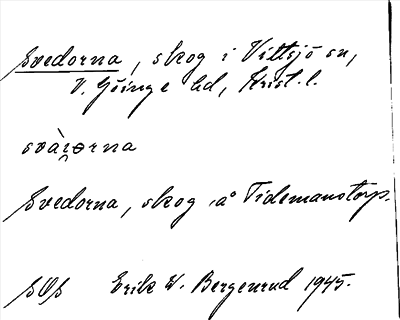 Svedorna, skog i Vittsjö sn,
V. Göinge hd, Krist. l.
svàɪ̯ɵrna
Svedorna, skog å Tidemanstorp.
SOS Erik W. Bergenrud 1945.